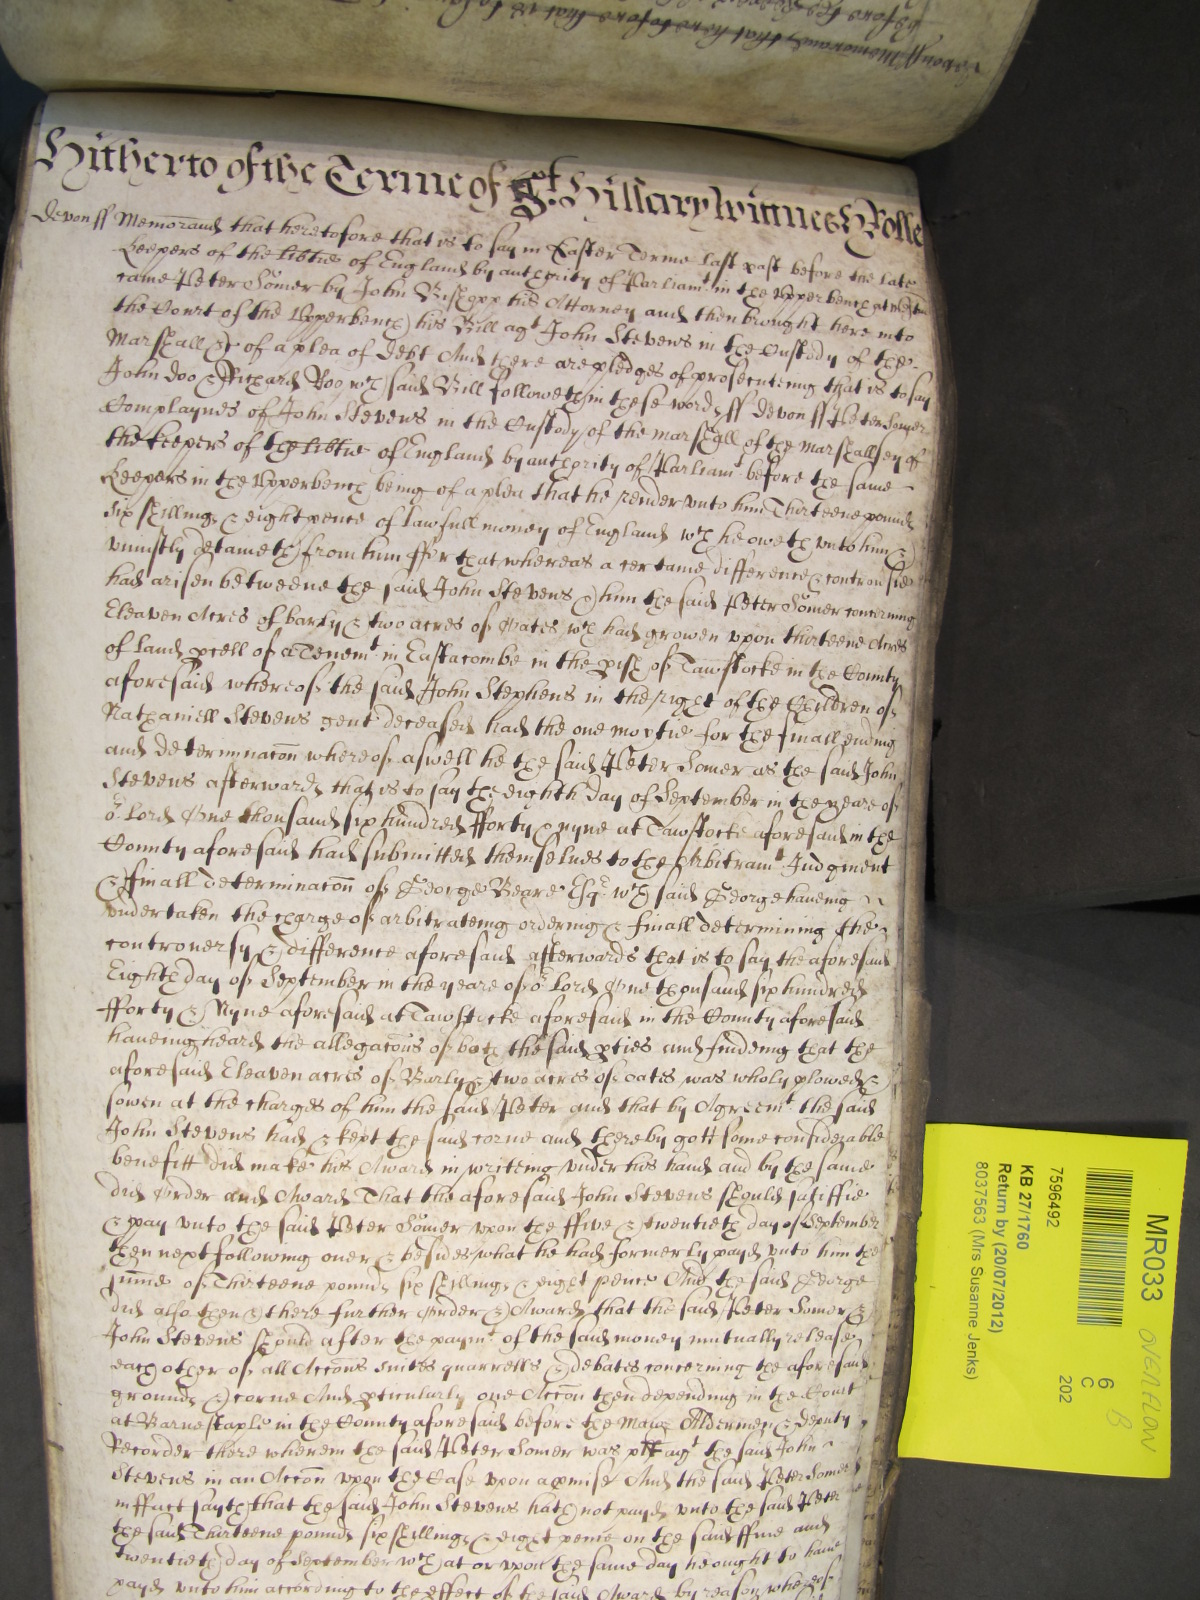 Hitherto of the Terme of St. Hillary Witnes H Rolle
Devon ss Memorand that heretofore that is to say in Easter Terme last past before the late
Keepers of the libtie of England by authority of Parliamt in the Upperbench at Westm
came Peter Somer by John his Attorney and then brought here into
the Court of the Upperbench his Bill agt John Stevens in the Custody of the
Marshall &c of a plea of debt And there are pledges of prosecuteing that is to say
John Doo & Richard Roo wch said Bill followeth in these words ss Devon ss Peter Somer
Complaynes of John Stevens in the Custody of the marshall of the Marshallsey of
the keepers of the libtie of England by authority of Parliamt before the same
Keepers in the Upperbench being of a plea that he render unto him Thirteene pounds
six shillings & eight pence of lawfull money of England wch he oweth unto him &
uniustly detaineth from him ffor that whereas a certaine difference & controvsie
had arisen betweene the said John Stevens & him the said Peter Somer concerning
Eleaven Acres of barly & two acres of Oates wch had growen upon thirteene Acres
of land pcell of a Tenemt in Eastacombe in the pish of Tawstocke in the County
aforesaid whereof the said John Stephens in the right of the Children of
Nathaniell Stevens gent deceased had the one moytie for the finall ending
and determinacon whereof aswell he the said Peter Somer as the said John
Stevens afterwards that is to say the eighth day of September in the yeare of
or Lord One thousand six hundred fforty & nyne at Tawstocke aforesaid in the
County aforesaid had submitted themselves to the Arbitramt Judgment
& ffinall determinacon of George Beare Esqr wch said George haveing
undertaken the charge of arbitrateing ordering & finall determining the
controversy & difference aforesaid afterwards that is to say the aforesaid
Eighth day of September in the yeare of or Lord One thousand six hundred
fforty & Nyne aforesaid at Tawstocke aforesaid in the County aforesaid
haveing heard the allegacons of both the said pties and findeing that the
aforesaid Eleaven acres of Barly & two acres of oates was wholy plowed &
sowen at the charges of him the said Peter and that by Agreemt the said
John Stevens had & kept the said corne and thereby gott some considerable
benefitt did make his Award in writeing under his hand and by the same
did Order and Award That the aforesaid John Stevens should satisfie
& pay unto the said Peter Somer upon the ffive & twentieth day of September
then next following over & besides what he had formerly payd unto him the
sume of Thirteene pounds six shillings & eight pence And the said George
did also then & there further Order & Award that the said Peter Somer &
John Stevens should after the paymt of the said money mutually release
each other of all Accons suites quarrells & debates concerning the aforesaid
grounds & corne And pticularly one Accon then depending in the Court
at Barnestaple in the County aforesaid before the Maior Aldermen & deputy
Recorder there wherein the said Peter Somer was plt agt the said John
Stevens in an Accon upon the Case upon a pmise And the said Peter Somer
in ffact sayth that the said John Stevens hath not payd unto the said Peter
the said Thirteene pounds six shillings & eight pence on the said ffive and
twentieth day of September wch at or upon the same day he ought to have
payd unto him according to the effect of the said Award by reason whereof
MR033
OVERFLOW
7596492
KB 27/1760
Return by (20/07/2012)
8037563 (Mrs Susanne Jenks)
6
C
202
B